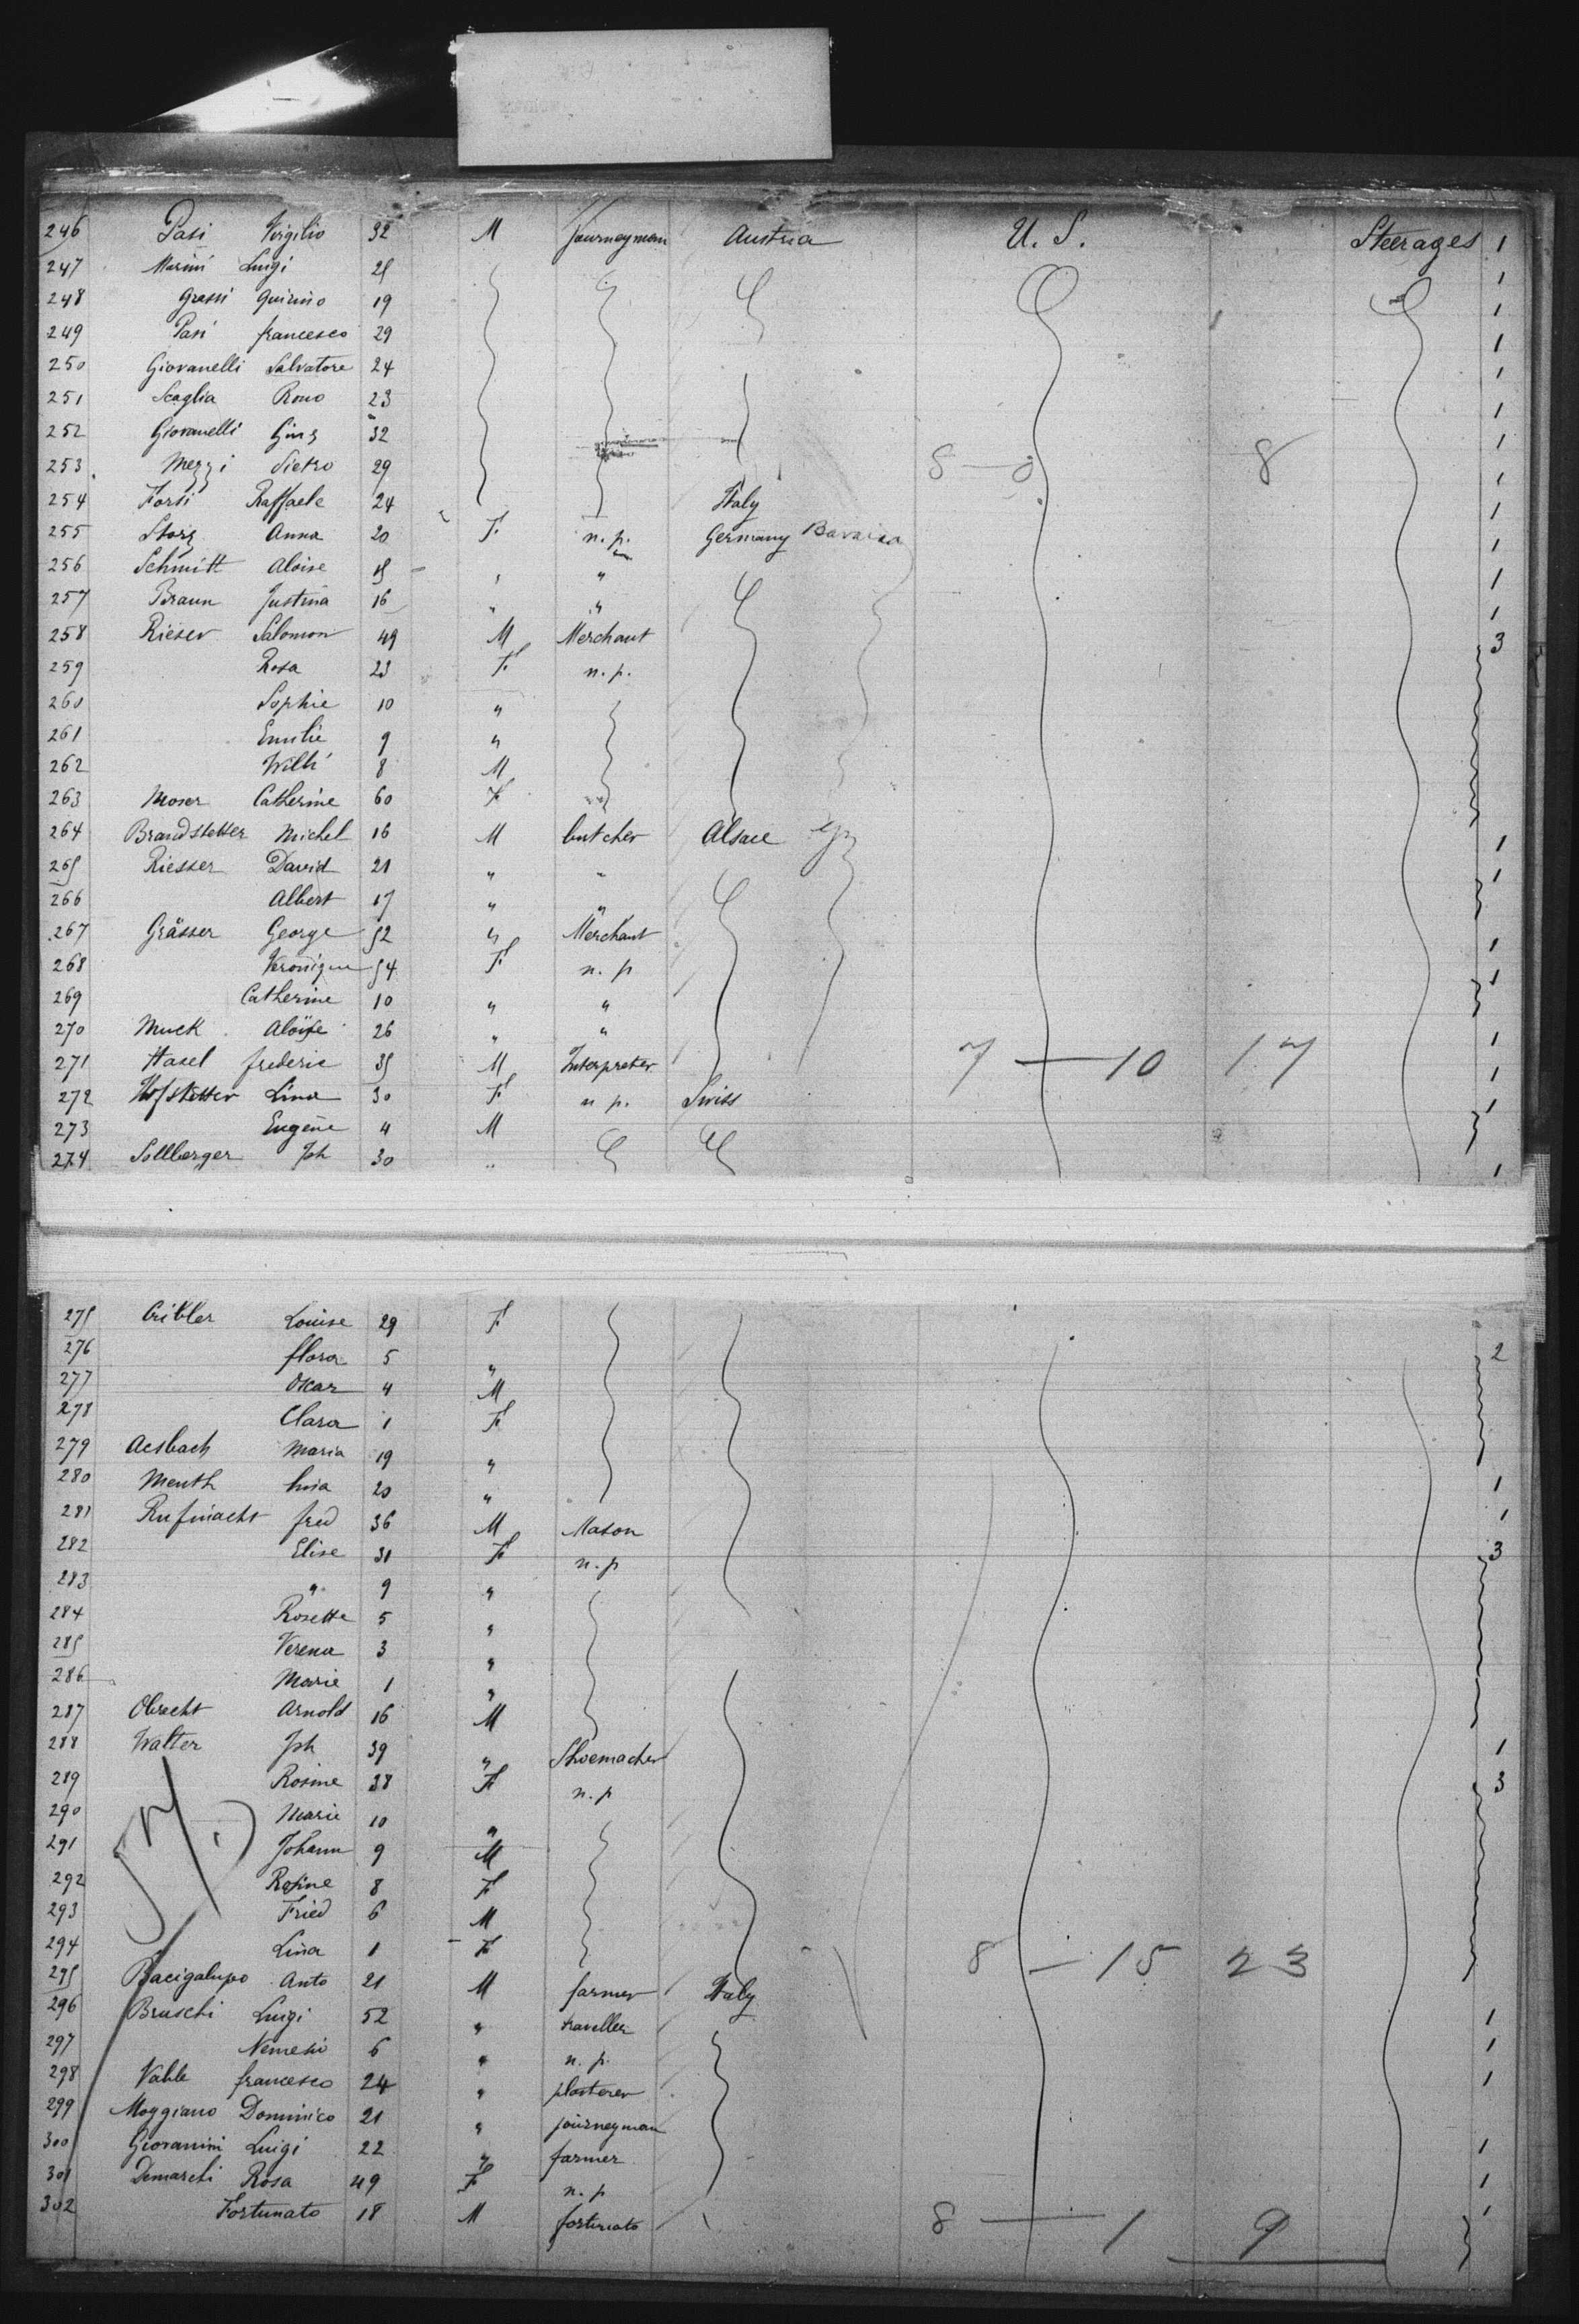 246 Pasi Virgilio 32 M Journeyman Austria U. S. Steerages 1
247 Marini Luigi 25 1
248 Grassi Quirino 19 1
249 Pasi francesco 29 1
250 Giovanelli Salvatore 24 1
251 Scaglia Romo 23 1
252 Giovanelli 32 1
253 Mezzi Pietro 29 8 — 0 8 1
254 Forsi Raffaele 24 Italy 1
255 Storz Anna 20 F n. p. Germany Bavaria 1
256 Schmitt Aloise 15 " 1
257 Braun Justina 16 " " 1
258 Rieser Salomon 49 M Merchant 3
259 Rosa 23 F n. p.
260 Sophie 10 "
261 Emilie 9 "
262 Willi 8 M
263 Moser Catherine 60 F
264 Brandstetter Michel 16 M butcher Alsace 1
265 Riesser David 21 " " 1
266 Albert 17 " "
267 Grässer George 52 " Merchant 1
268 Veronique 54 F n. p 1
269 Catherine 10 " "
270 Muck Aloïse 26 " " 1
271 Hasel frederic 35 M Interpreter 7 — 10 17 1
272 Hofstetter Lina 30 F n p. Swiss 1
273 Eugene 4 M
274 Sollberger Joh 30 " 1
275 Cribler Louise 29 F
276 flora 5 " 2
277 Oskar 4 M
278 Clara 1 F
279 Aesbach Maria 19 "
280 Menth 20 " 1
281 Rufinacht fred 36 M Mason 1
282 Elise 31 F n. p 3
283 " 9 "
284 Rosette 5 "
285 Verena 3 "
286 Marie 1 "
287 Obrecht Arnold 16 M
288 Walter Joh 39 " Shoemacher 1
289 Rosine 38 F n. p 3
290 Marie 10 "
291 Johann 9 M
292 Rosine 8 F
293 Fried 6 M
294 Lina 1 F 8 — 15 23
295 Bacigalupo Anto 21 M farmer Italy
296 Bruschi Luigi 52 " traveller 1
297 Nemesio 6 " n. p. 1
298 Valle francesco 24 " plasterer 1
299 Moggiano Dominico 21 " journeyman
300 Giovannini Luigi 22 " farmer 1
301 Demarchi Rosa 49 F n. p 1
302 Fortunato 18 M fortunato 8 — 1 9 1